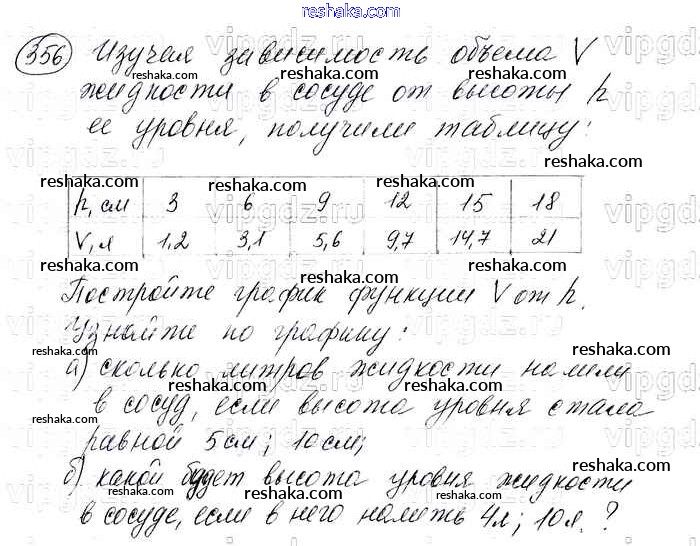 reshaka.com
356 Изучая зависимость объема V
жидкости в сосуде от высоты h
ее уровня, получили таблицу:
h, см 3 6 9 12 15 18
V, л 1,2 3,1 5,6 9,7 14,7 21
Постройте график функции V от h.
Узнайте по графику:
а) сколько литров жидкости налили
в сосуд, если высота уровня стала
равной 5см; 10см;
б) какой будет высота уровня жидкости
в сосуде, если в него налить 4л; 10л.?
vipgdz.ru
reshaka.com